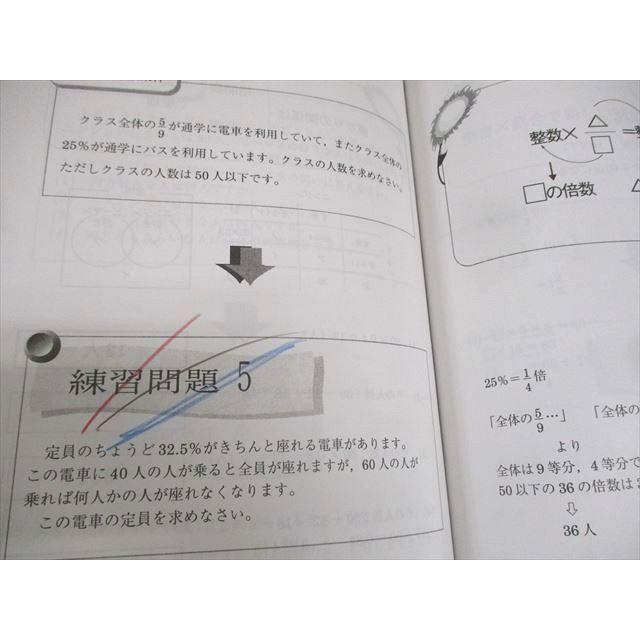 クラス全体の5/9が通学に電車を利用していて，またクラス全体の
25%が通学にバスを利用しています。クラスの人数を求めなさい。
ただしクラスの人数は50人以下です。
練習問題 5
定員のちょうど32.5%がきちんと座れる電車があります。
この電車に40人の人が乗ると全員が座れますが，60人の人が
乗れば何人かの人が座れなくなります。
この電車の定員を求めなさい。
整数×△/□＝
↓
□の倍数
25%＝1/4倍
「全体の5/9…」 「全体の
より
全体は9等分，4等分で
50以下の36の倍数は
⇩
36人